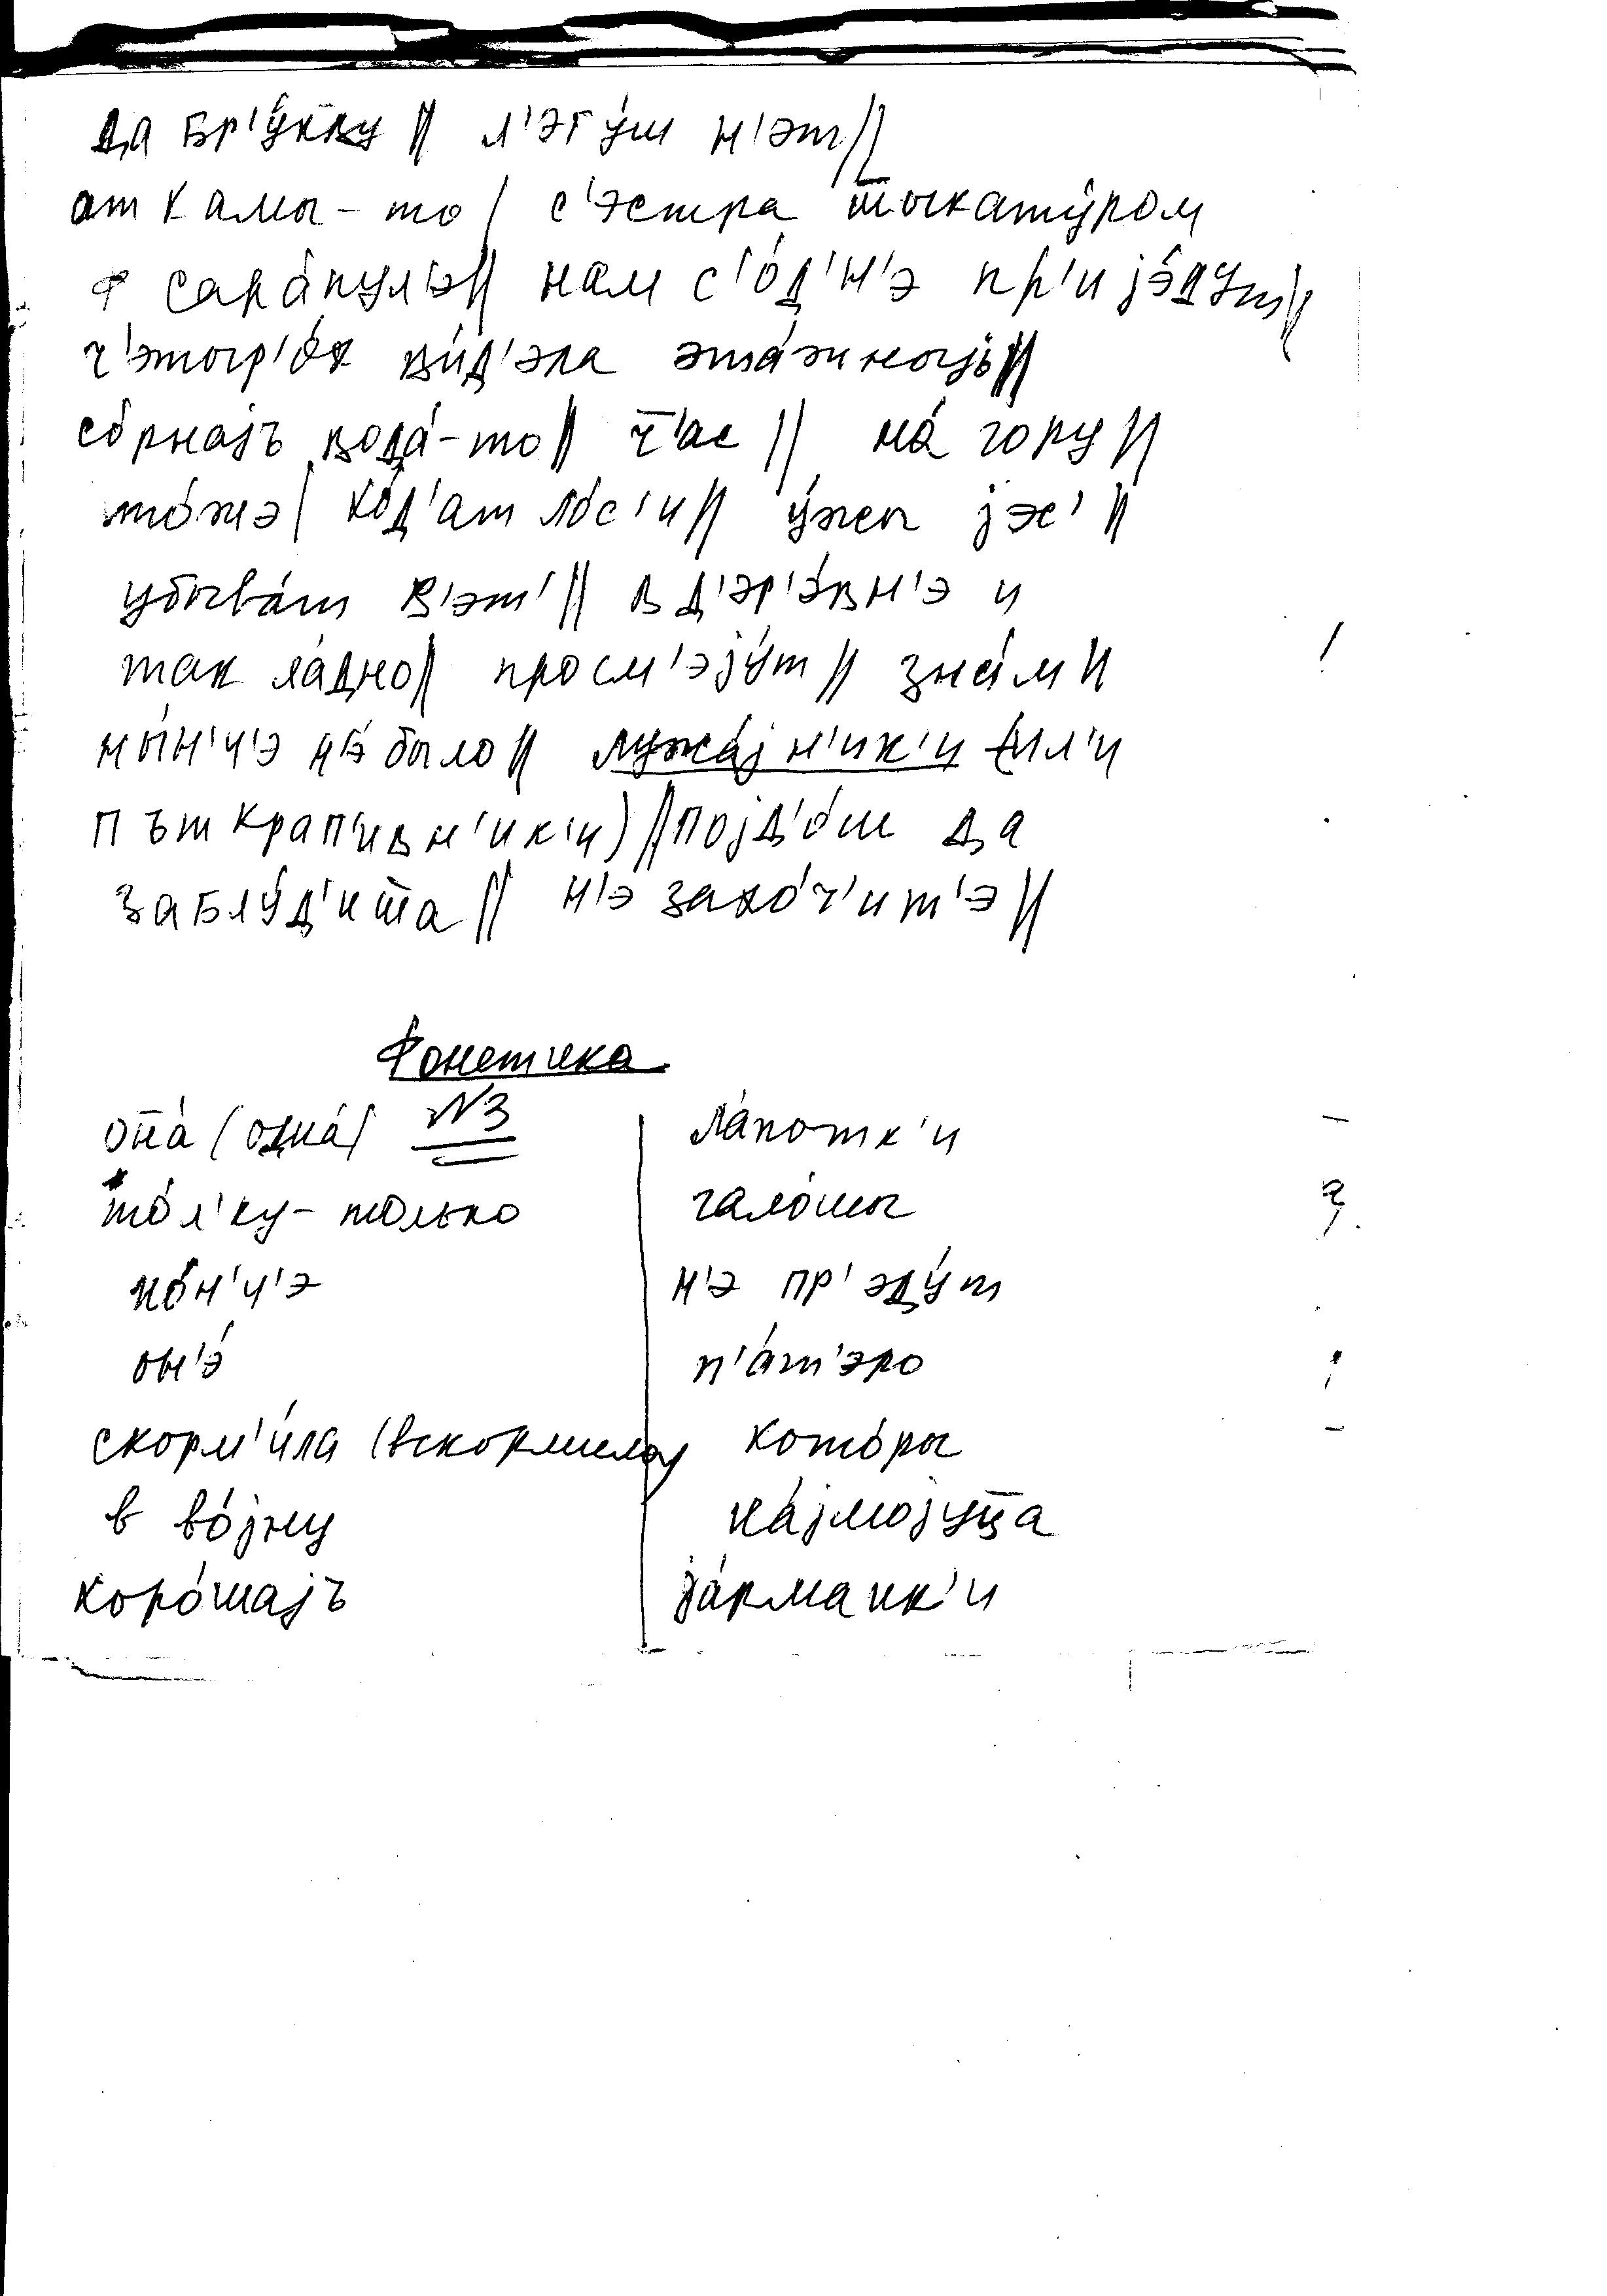 да бр'у́кву // л'эгу́ш н'эт //
от камы-то / с'эстра т̄ыкату́ром
ф сара́пул'э // нам с'о́д'н'э пр'ијэ́дут //
ч'этыр'о́х ви́д'эла эта́жныјь //
со́рнајъ вода́-то // ч̄'ас // на́ гору //
то́жэ / хо́д'ат ло́с'и // у́жы јэс' //
убыва́т в'эт' // в д'эр'э́вн'э и
так ла́дно // просм'эју́т // зна́м //
ны́н'ч'э н'э́ было // лужа́јн'ик'и (ил'и
пъткрап'ивн'ик'и) // појд'о́ш да
заблу́д'ит̄а // н'э захо́ч'ит'э //
Фонетика
№3
он̄а́ (одна́) ла́потк'и
то́л'ку - только гало́шы
но́н'ч'э н'э пр'эду́т
он'э́ п'а́т'эро
скорм'и́ла (вскормила) кото́ры
в во́јну на́јмојуц̄а
хоро́шајъ ја́рманк'и